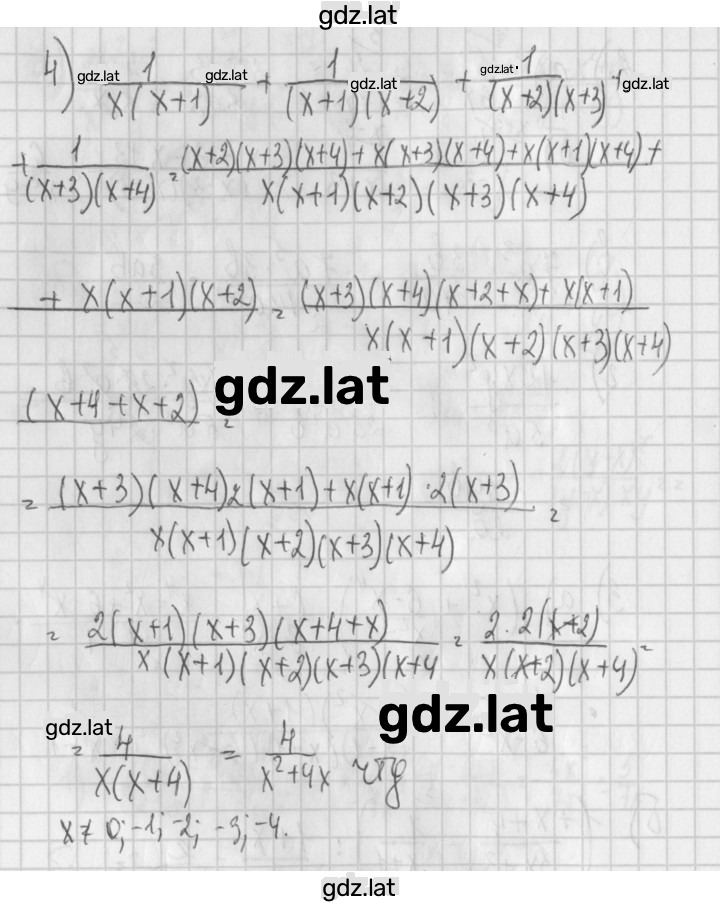 gdz.lat
4) 1/(x(x+1)) + 1/((x+1)(x+2)) + 1/((x+2)(x+3)) +
gdz.lat gdz.lat gdz.lat gdz.lat gdz.lat
+ 1/((x+3)(x+4)) = ((x+2)(x+3)(x+4) + x(x+3)(x+4) + x(x+1)(x+4) +)/(x(x+1)(x+2)(x+3)(x+4))
+ x(x+1)(x+2) = ((x+3)(x+4)(x+2+x) + x(x+1))/(x(x+1)(x+2)(x+3)(x+4))
(x+4+x+2) =
gdz.lat
= ((x+3)(x+4)2(x+1) + x(x+1)·2(x+3))/(x(x+1)(x+2)(x+3)(x+4)) =
= (2(x+1)(x+3)(x+4+x))/(x(x+1)(x+2)(x+3)(x+4) = (2·2(x+2))/(x(x+2)(x+4)) =
gdz.lat
gdz.lat
= 4/(x(x+4)) = 4/(x²+4x) чтд
x ≠ 0; -1; -2; -3; -4.
gdz.lat